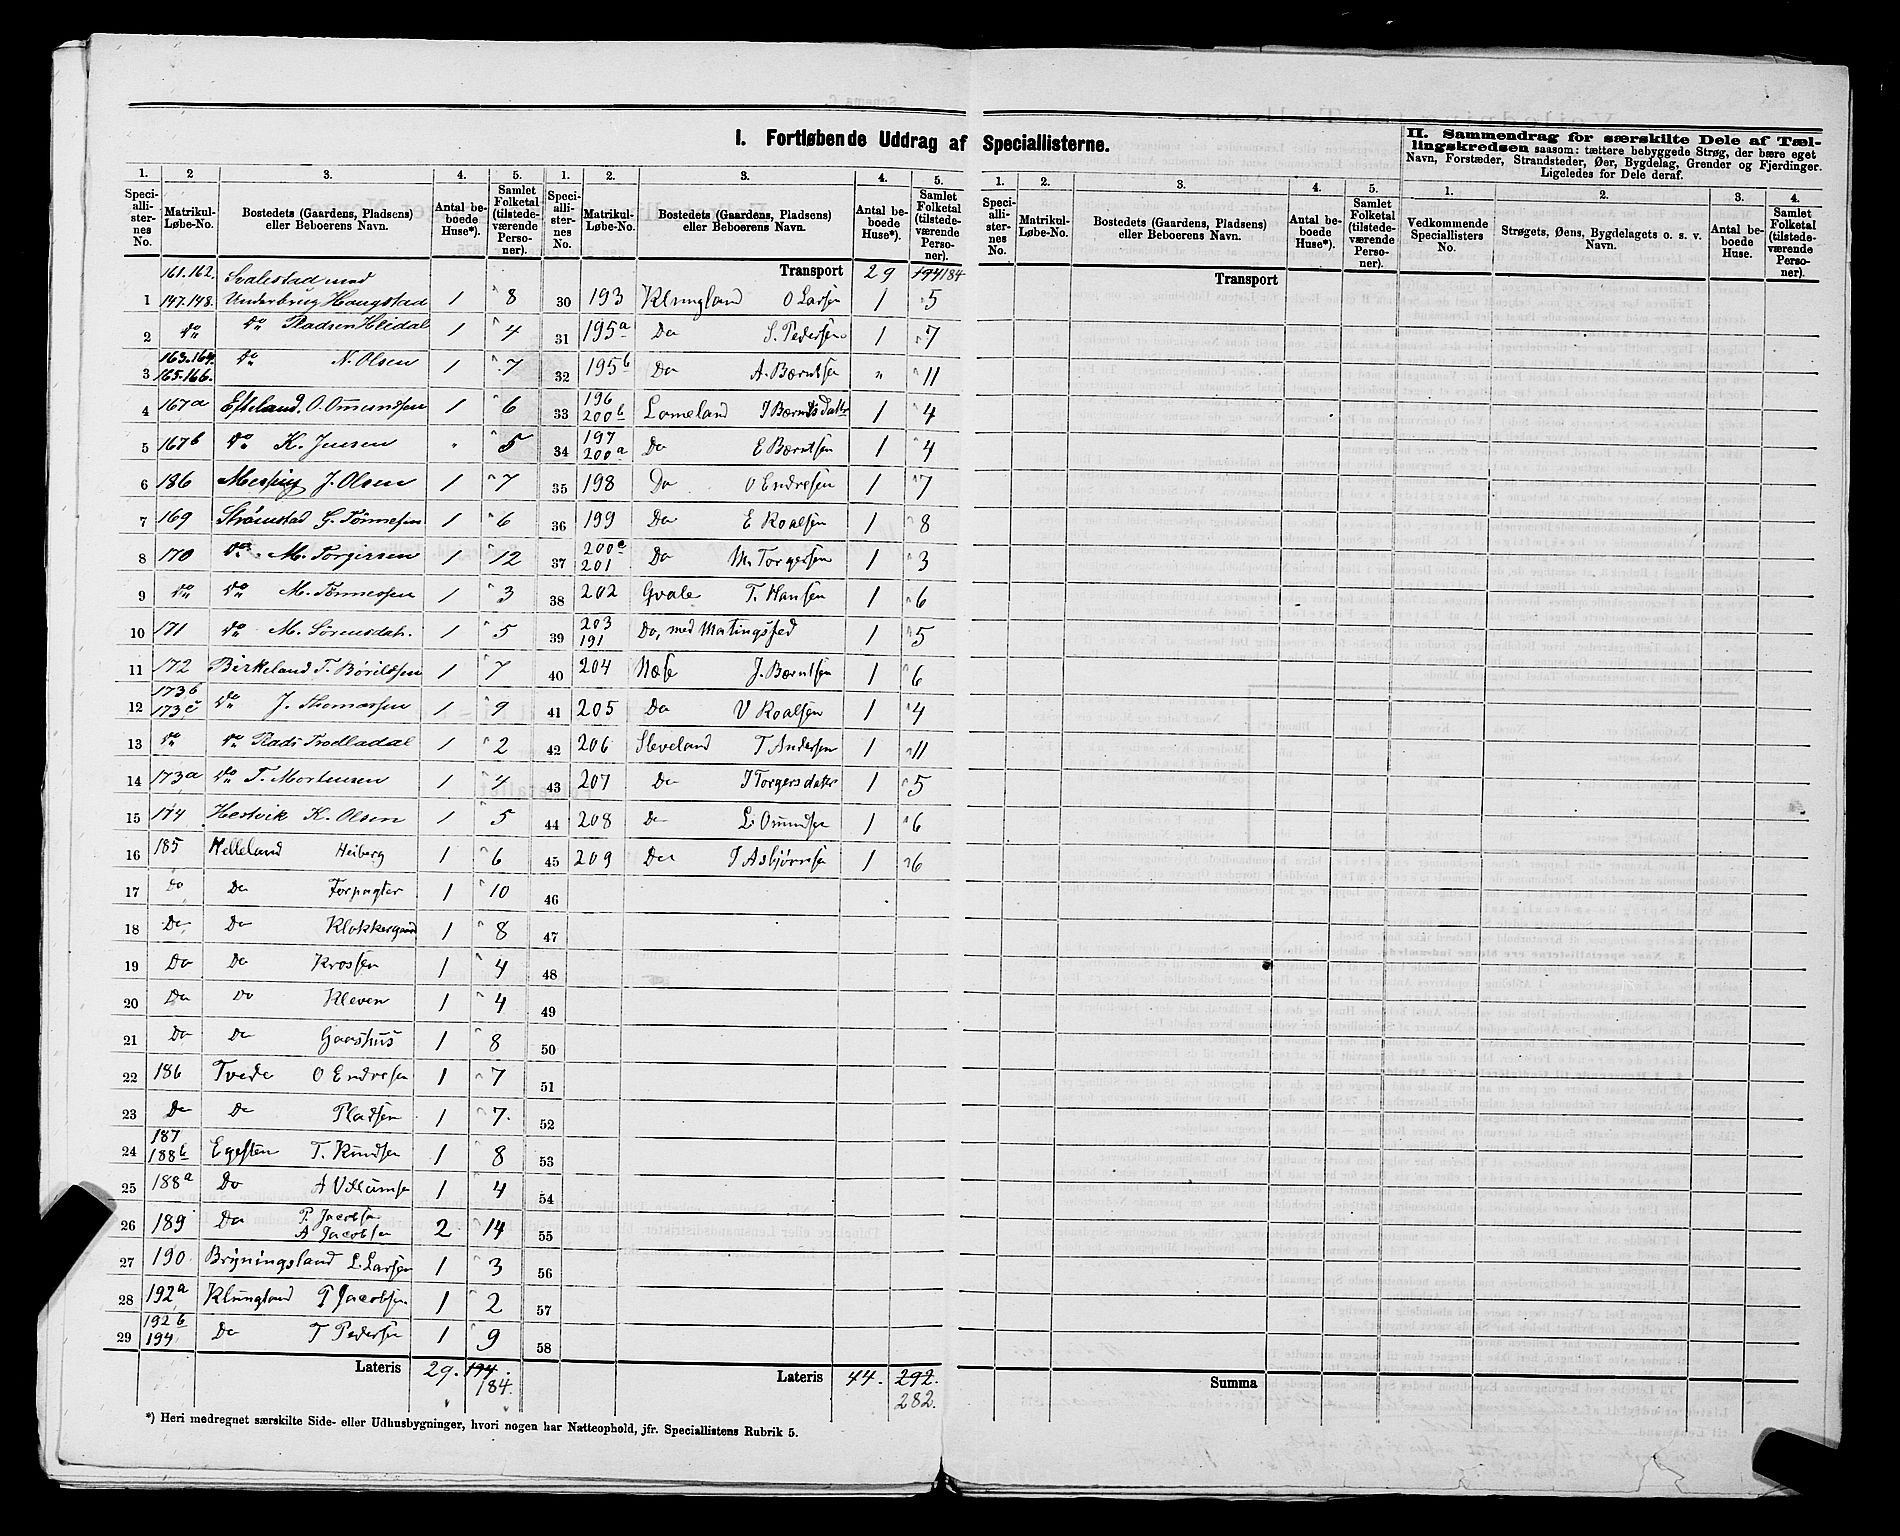 I. Fortløbende Uddrag af Speciallisterne.
II. Sammendrag for særskilte Dele af Tæl-
lingskredsen saasom: tættere bebyggede Strøg, der bære eget
Navn, Forstæder, Strandsteder, Øer, Bygdelag, Grender og Fjerdinger.
Ligeledes for Dele deraf.
1. 2 3. 4. 5. 1. 2. 3. 4. 5. 1. 2. 3. 4. 5. 1. 2. 3. 4.
Speciallisternes No. Matrikul-Løbe-No. Bostedets (Gaardens, Pladsens) eller Beboerens Navn. Antal beboede Huse*). Samlet Folketal (tilstedeværende Personer).
Speciallisternes No. Matrikul-Løbe-No. Bostedets (Gaardens, Pladsens) eller Beboerens Navn. Antal beboede Huse*). Samlet Folketal (tilstedeværende Personer).
Speciallisternes No. Matrikul-Løbe-No. Bostedets (Gaardens, Pladsens) eller Beboerens Navn. Antal beboede Huse*). Samlet Folketal (tilstedeværende Personer).
Vedkommende Speciallisters No. Strøgets, Øens, Bygdelagets o. s. v. Navn. Antal beboede Huse. Samlet Folketal (tilstedeværende Personer).
161.162. Svalestad med
1 147.148. Underbrug Haugstad 1 8
2 Do Do Pladsen Heidal 1 4
3 163.164. 165.166. Do N. Olsen 1 7
4 167a Efteland O. Omundsen 1 6
5 167b Do K. Jensen " 5
6 186 J. Olsen 1 7
7 169 Strømstad G. Tønnesen 1 6
8 170 Do M. Torgersen 1 12
9 Do Do M. Tønnessen 1 3
10 171 Do M. Sørensdatr. 1 5
11 172 Birkeland T. Børildsen 1 7
12 173b 173c Do J. Thomassen 1 9
13 Do Do Plads Trodladal 1 2
14 173a Do T. Mortensen 1 4
15 174 Hestvik K. Olsen 1 5
16 185 Helleland Heiberg 1 6
17 Do Do Forpagter 1 10
18 Do Do Klokkergaard 1 8
19 Do Do Krossen 1 4
20 Do Do Kleven 1 4
21 Do Do Gaashus 1 8
22 186 Tvede O Endresen 1 7
23 Do Do Pladsen 1 7.
24 187 188b Egesten T. Knudsen 1 8
25 188a Do A Villumsen 1 4
26 189 Do P. Jacobsen A Jacobsen 2 14
27 190 Bryningsland L. Larsen 1 3
28 192a Klungland P Jacobsen 1 2
29 192b 194 Do T Pedersen 1 9
Lateris 29. 194. 184.
Transport 29 194 184
30 193 Klungland O Larsen 1 5
31 195a Do S. Pedersen 1 7
32 195b Do A. Berntsen " 11
33 196 200b Lomeland I Berntsdatter 1 4
34 197 200a Do E Berntsen 1 4
35 198 Do O Endresen 1 7
36 199 Do E Roalsen 1 8
37 200c 201 Do M. Torgersen 1 3
38 202 Gvale T. Hansen 1 6
39 203 191 Do, med 1 5
40 204 Næse J. Berntsen 1 6
41 205 Do V Roalsen 1 4
42 206 Sleveland T Andersen 1 11
43 207 Do I Torgersdatter 1 5
44 208 Do L. Omundsen 1 6
45 209 Do T Asbjørnsen 1 6
46
47
48
49
50
51
52
53
54
55
56
57
58
Lateris 44. 292. 282.
Transport
Summa
*) Heri medregnet særskilte Side- eller Udhusbygninger, hvori nogen har Natteophold, jfr. Speciallistens Rubrik 5.